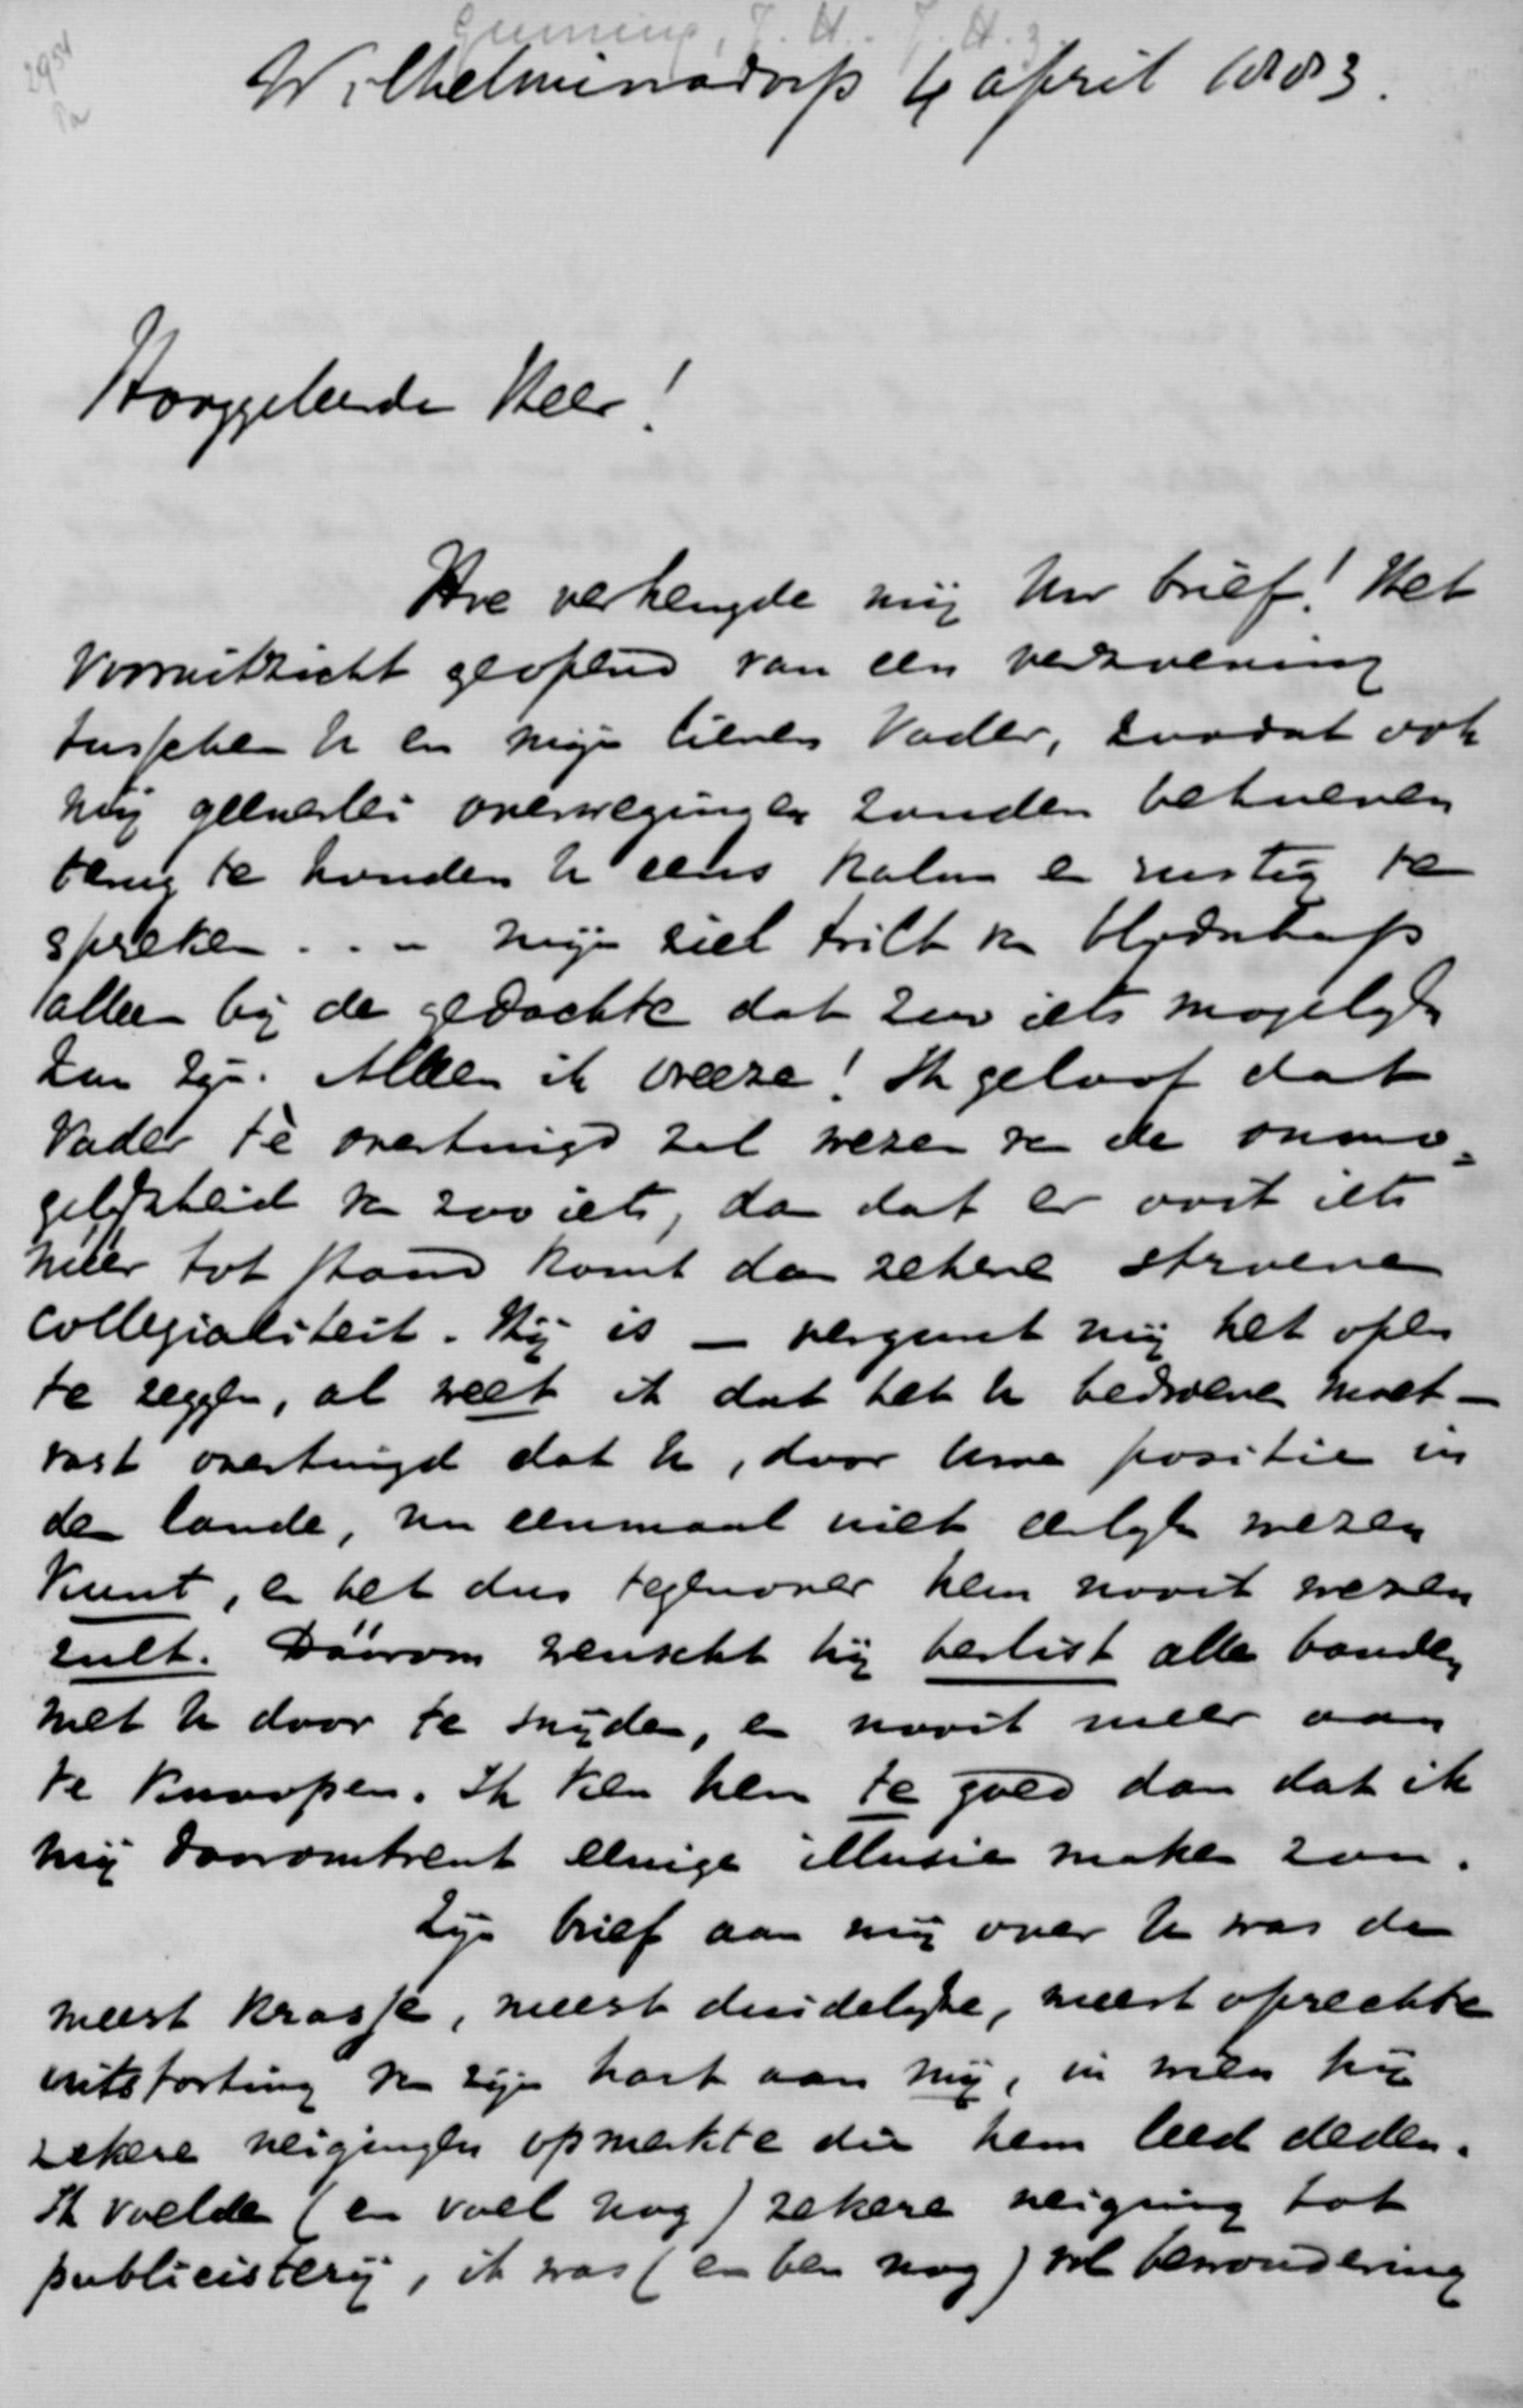 2954
Pa
Gunning, J. H. J. H.z.
Wilhelminadorp 4 april 1883.
Hooggeleerde Heer!
Hoe verheugde mij Uw brief! Het
vooruitzicht geopend van een verzoening
tusschen U en mijn lieven Vader, zoodat ook
mij geenerlei overwegingen zouden behoeven
terug te houden U eens kalm en rustig te
spreken . . - mijn ziel trilt v. blijdschap
alleen bij de gedachte dat zoo iets mogelijk
kan zijn. Alleen ik vreeze! Ik geloof dat
Vader te overtuigd zal wezen v. de onmo-
gelijkheid v. zoo iets, dan dat er ooit iets
meer tot stand komt dan zekere stroeve
collegialiteit. Hij is - vergeeft mij het open
te zeggen, al weet ik dat het U bedroeven moet -
vast overtuigd dat U, door Uwe positie in
den lande, nu eenmaal niet eerlijk wezen
kunt, en het dus tegenover hem nooit wezen
zult. Dáárom wenscht hij beslist alle banden
met U door te snijden, en nooit meer aan
te knoopen. Ik ken hem te goed dan dat ik
mij daaromtrent eenige illusie maken zou.
Zijn brief aan mij over U was de
meest krasse, meest duidelijke, meest oprechte
uitstorting v. zijn hart aan mij, in wien hij
zekere neigingen opmerkte die hem leed deden.
Ik voelde (en voel nog) zekere neiging tot
publicisterij, ik was (en ben nog) vol bewondering